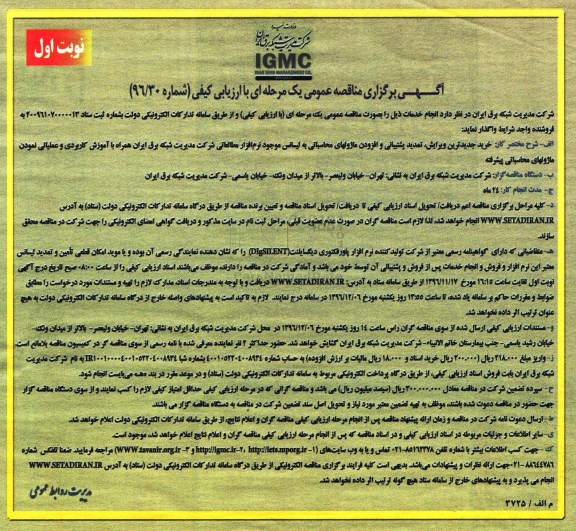 نوبت اول
وزارت نیرو
شرکت مدیریت شبکه برق ایران
IGMC
IRAN GRID MANAGEMENT CO.
آگهی برگزاری مناقصه عمومی یک مرحله ای با ارزیابی کیفی (شماره ۹۶/۳۰)
شرکت مدیریت شبکه برق ایران در نظر دارد انجام خدمات ذیل را بصورت مناقصه عمومی یک مرحله ای (با ارزیابی کیفی) و از طریق سامانه تدارکات الکترونیکی دولت بشماره ثبت ستاد ۲۰۰۹۶۱۰۷۰۰۰۰۰۱۳ به
فروشنده واجد شرایط واگذار نماید:
الف- شرح مختصر کار: خرید جدیدترین ویرایش، تمدید پشتیبانی و افزودن ماژولهای محاسباتی به لیسانس موجود نرم‌افزار مطالعاتی شرکت مدیریت شبکه برق ایران همراه با آموزش کاربردی و عملیاتی نمودن
ماژولهای محاسباتی پیشرفته
ب- دستگاه مناقصه‌گزار: شرکت مدیریت شبکه برق ایران به نشانی: تهران- خیابان ولیعصر- بالاتر از میدان ونک- خیابان یاسمی- شرکت مدیریت شبکه برق ایران
ج- مدت انجام کار: ۲۴ ماه
د- کلیه مراحل برگزاری مناقصه اعم دریافت/ تحویل اسناد ارزیابی کیفی تا دریافت/ تحویل اسناد مناقصه و تعیین برنده مناقصه از طریق درگاه سامانه تدارکات الکترونیکی دولت (ستاد) به آدرس
WWW.SETADIRAN.IR انجام خواهد شد. لذا لازم است مناقصه گران در صورت عدم عضویت قبلی، مراحل ثبت نام در سایت مذکور و دریافت گواهی امضای الکترونیکی را جهت شرکت در مناقصه محقق
سازند.
هـ- متقاضیانی که دارای گواهینامه رسمی معتبر از شرکت تولیدکننده نرم افزار پاورفکتوری دیگسایلنت (DIgSILENT) را که نشان دهنده نمایندگی رسمی آن بوده و یا موید امکان قطعی تأمین و تمدید لیسانس
معتبر این نرم افزار و فروش و انجام خدمات پس از فروش و پشتیبانی آن توسط خود می باشد و آمادگی شرکت در مناقصه را دارند، موظف می‌باشند اسناد ارزیابی کیفی را از ساعت ۰۸:۰۰ صبح تاریخ درج آگهی
نوبت اول لغایت ساعت ۱۶:۱۵ مورخ ۱۳۹۶/۱۱/۱۷ از طریق سامانه ستاد به آدرس WWW.SETADIRAN.IR دریافت و با توجه به مندرجات اسناد، مدارک لازم را تهیه و مستندات مورد درخواست را مطابق
ضوابط و مقررات حاکم بر سامانه یاد شده، تا ساعت ۱۳:۵۵ روز یکشنبه مورخ ۱۳۹۶/۱۲/۰۶ در سامانه درج نمایند. لازم به تاکید است به پیشنهادهای واصله خارج از درگاه سامانه تدارکات الکترونیکی دولت به هیچ
عنوان ترتیب اثر داده نخواهد شد.
و- مستندات ارزیابی کیفی ارسال شده از سوی مناقصه گران راس ساعت ۱۴ روز یکشنبه مورخ ۱۳۹۶/۱۲/۰۶ در محل شرکت مدیریت شبکه برق ایران به نشانی: تهران- خیابان ولیعصر- بالاتر از میدان ونک-
خیابان رشید یاسمی- جنب بیمارستان خاتم الانبیاء- شرکت مدیریت شبکه برق ایران گشایش خواهد شد. حضور حداکثر ۲ نفر نماینده معرفی شده با نامه رسمی از سوی مناقصه گر در کمیسیون مناقصه بلامانع است.
ز- واریز مبلغ ۲۱۸.۰۰۰ ریال (۲۰۰.۰۰۰ ریال خرید اسناد و ۱۸.۰۰۰ ریال مالیات بر ارزش افزوده) به حساب شماره ۴۰۰۱۰۵۲۲۰۴۰۰۸۹۳۴ به نام شرکت مدیریت
شبکه برق ایران بابت فروش اسناد ارزیابی کیفی، از طریق درگاه پرداخت الکترونیکی مربوط به سامانه تدارکات الکترونیکی دولت (ستاد) و در موعد مقرر در بند «هـ» می‌بایست انجام شود.
ح- سپرده تضمین شرکت در مناقصه معادل ۳۰۰.۰۰۰.۰۰۰ ریال (سیصد میلیون ریال) می باشد و مناقصه گرانی که در مرحله ارزیابی کیفی حداقل امتیاز کیفی لازم را کسب نمایند و از سوی دستگاه مناقصه گزار
جهت حضور در مناقصه دعوت شده باشند، موظف به تهیه تضمین معتبر مورد نیاز و تحویل اصل سند تضمین شرکت در مناقصه به دستگاه مناقصه گزار می باشند.
ط- ارسال دعوت نامه شرکت در مناقصه و زمان ارائه پیشنهاد مناقصه پس از انجام مرحله ارزیابی کیفی مناقصه گران و اعلام نتایج، از طریق سامانه تدارکات الکترونیکی دولت اعلام خواهد شد.
ی- سایر اطلاعات و جزئیات مربوطه در اسناد ارزیابی کیفی و در اسناد مناقصه که پس از انجام مرحله ارزیابی کیفی مناقصه گران و اعلام نتایج اعلام خواهد شد، موجود است.
ک- جهت کسب اطلاعات بیشتر با شماره تلفن ۸۵۱۶۲۳۷۸-۰۲۱ تماس و یا به وب سایت‌های (۱- http://iets.mporg.ir ۲- http://igmc.ir و ۳- www.tavanir.org.ir) مراجعه فرمایید. ضمنا تلفکس شماره
۸۸۶۴۴۷۸۶-۰۲۱ جهت ارائه نظرات و پیشنهادات می‌باشد. بدیهی است کلیه فرایند برگزاری مناقصه الکترونیکی از طریق درگاه سامانه تدارکات الکترونیکی دولت (ستاد) به آدرس WWW.SETADIRAN.IR
انجام می پذیرد و به پیشنهادهای خارج از سامانه ستاد هیچ گونه ترتیب اثر داده نخواهد شد.
مدیریت روابط عمومی
م الف / ۳۷۲۵